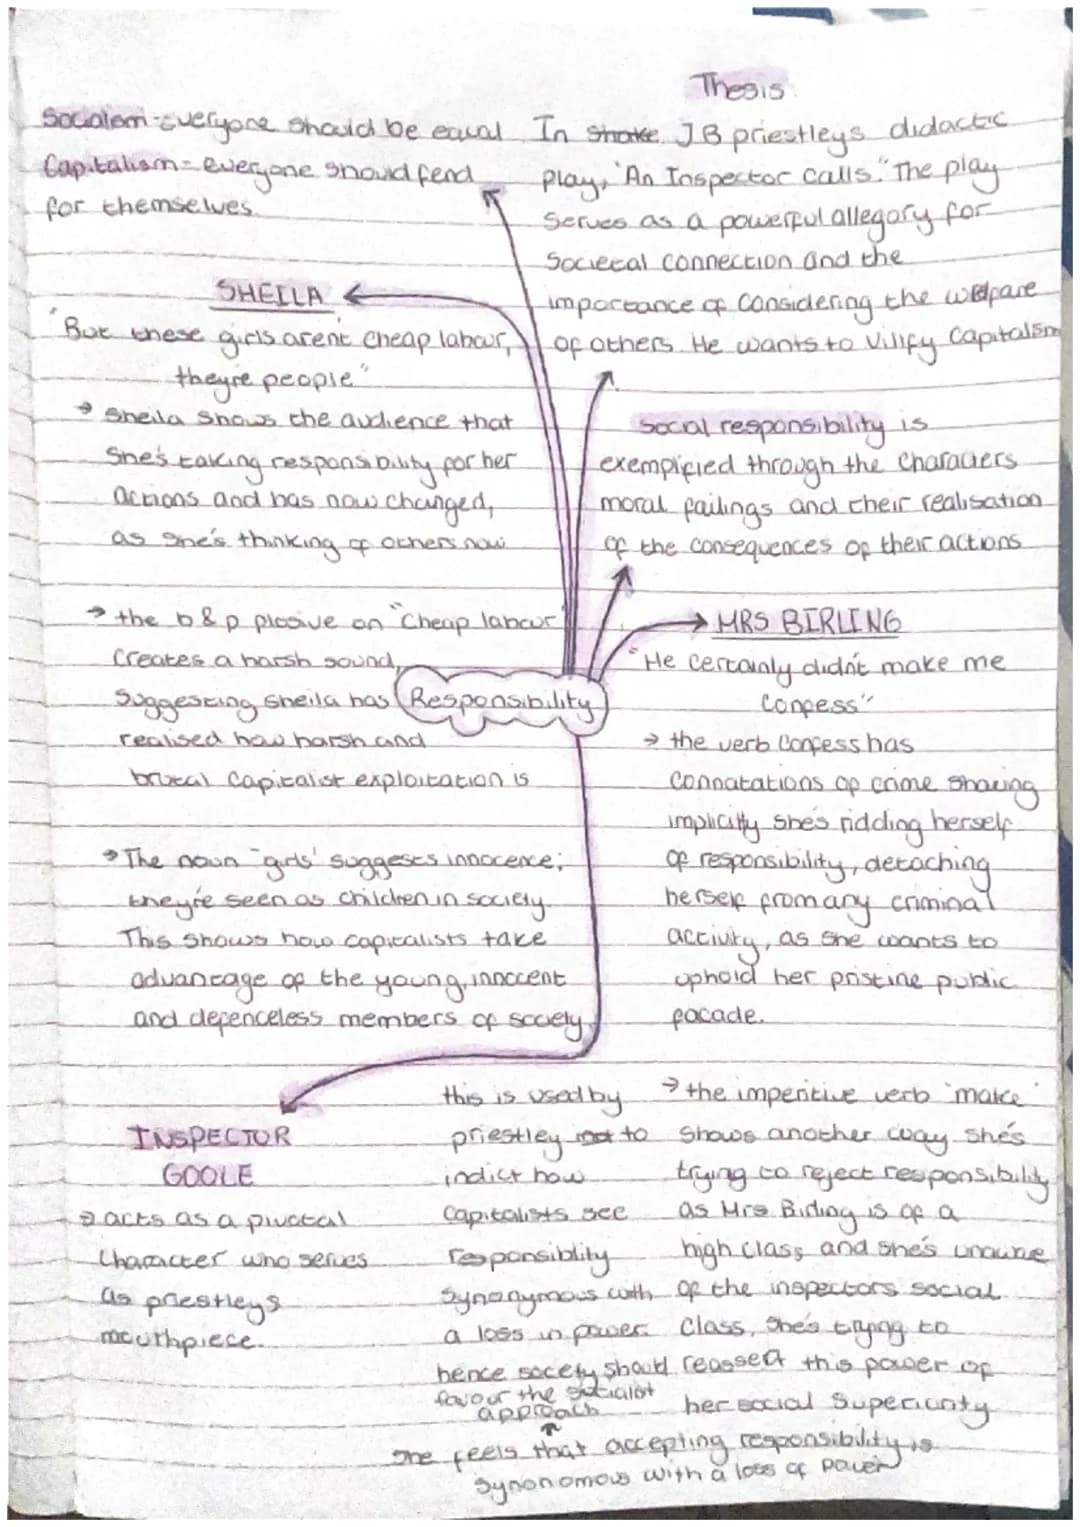 Thesis
Socialism-Everyone should be equal
Capitalism= everyone should fend
for themselves.
In JB priestleys didactic
play, 'An Inspector calls." The play
serves as a powerful allegory for
societal connection and the
importance of considering the welfare
of others. He wants to vilify capitalism
SHEILA
"But these girls arent cheap labour,
theyre people"
→ Sheila shows the audience that
she's taking responsibility for her
actions and has now changed,
as she's thinking of others now
→ the b & p plosive on "Cheap labour"
creates a harsh sound,
suggesting sheila has
realised how harsh and
brutal capitalist exploitation is
→ The noun "girls' suggests innocence;
they're seen as children in society.
This shows how capitalists take
advantage of the young, innocent
and defenceless members of society
Responsibility
Social responsibility is
exempified through the characters
moral failings and their realisation
of the consequences of their actions
MRS BIRLING
"He certainly didn't make me
confess"
→ the verb confess has
connatations of crime showing
implicitly she's ridding herself
of responsibility, detaching
herself from any criminal
activity, as she wants to
uphold her pristine public
facade.
→ the imperitive verb 'make'
shows another way she's
trying to reject responsibility
as Mrs Birling is of a
high class and she's unaware
of the inspectors social
class, she's trying to
reassert this power of
her social superiority
INSPECTOR
GOOLE
→ acts as a pivotal
character who serves
as priestleys
mouthpiece.
this is used by
priestley to
indict how
capitalists see
responsiblity
synonymous with
a loss in power.
hence society should
favour the socialist
approach
she feels that accepting responsibility is
synonomous with a loss of power